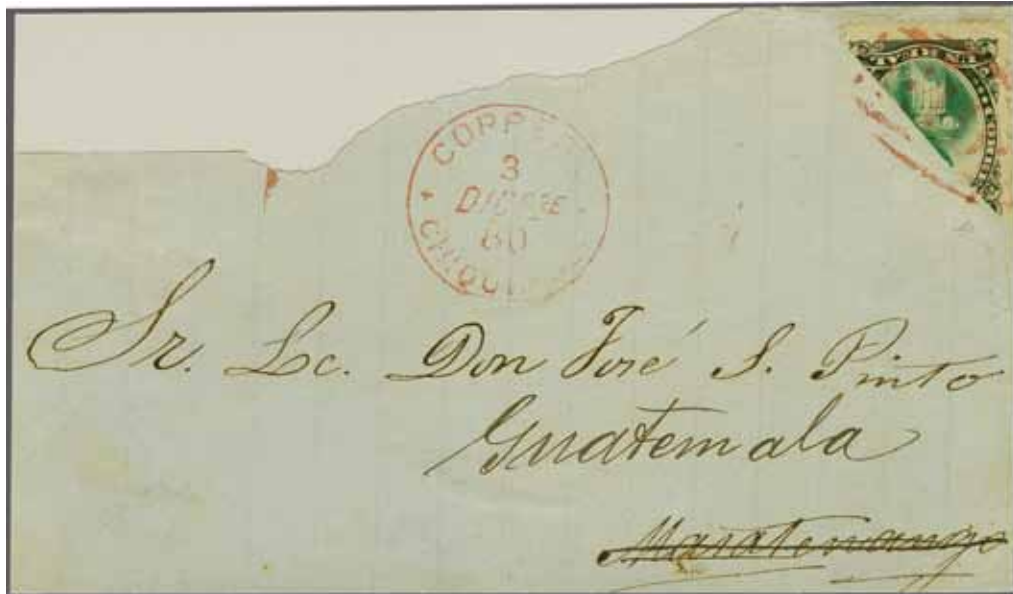 3
DICBRE
80
Sr. Lc. Don José S. Pinto
Guatemala
Mazatenango